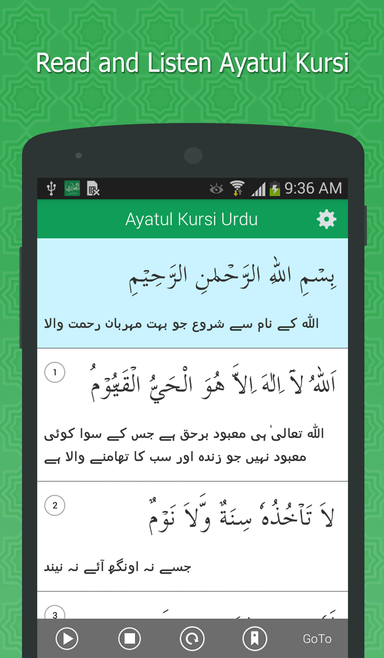 Read and Listen Ayatul Kursi
9:36 AM
Ayatul Kursi Urdu
بِسْمِ اللهِ الرَّحْمٰنِ الرَّحِيْمِ
اللّٰہ کے نام سے شروع جو بہت مہربان رحمت والا
1
اَللهُ لَاۤ اِلٰهَ اِلاَّ هُوَ الْحَيُّ الْقَيُّوْمُ
اللّٰہ تعالیٰ ہی معبود برحق ہے جس کے سوا کوئی
معبود نہیں جو زندہ اور سب کا تھامنے والا ہے
2
لاَ تَاْخُذُهٗ سِنَةٌ وَّلاَ نَوْمٌ
جسے نہ اونگھ آئے نہ نیند
3
GoTo